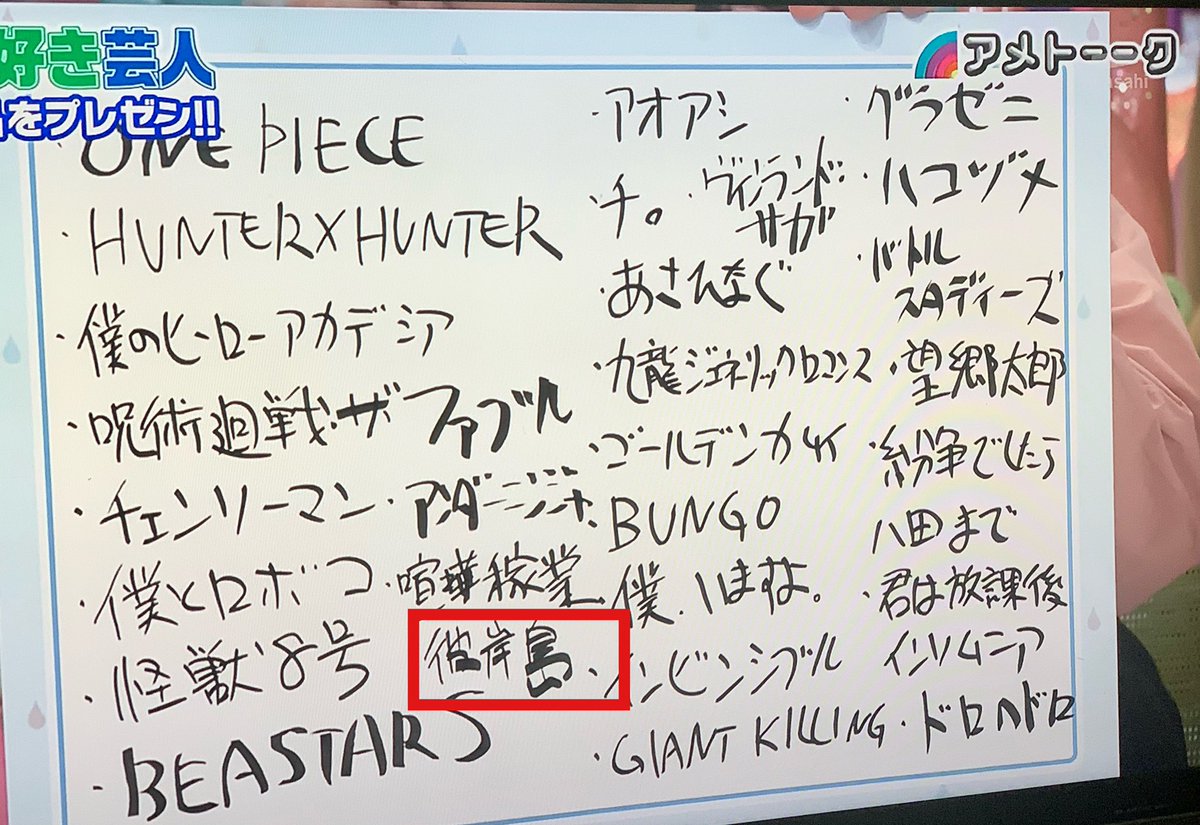 好き芸人
をプレゼン!!
アメトーーク
・ONE PIECE
・HUNTER×HUNTER
・僕のヒーローアカデミア
・呪術廻戦・ザ ファブル
・チェンソーマン・アンダーニンジャ
・僕とロボコ・喧嘩稼業
・怪獣8号 彼岸島
・BEASTARS
・アオアシ
・チ。・ヴィンランド・
サガ
・あさひなぐ
・九龍ジェネリックロマンス
・ゴールデンカムイ
・BUNGO
・僕
・インビンシブル
・GIANT KILLING
・グラゼニ
・ハコヅメ
・バトル
スタディーズ
・望郷太郎
・紛争でしたら
八田まで
・君は放課後
インソムニア
・ドロヘドロ